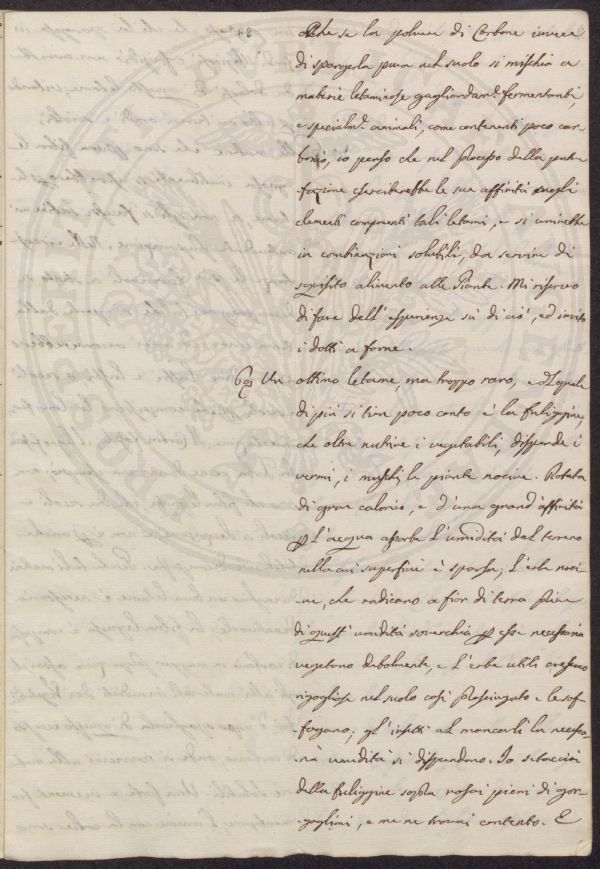 Che se la polvere di Carbone invece
di spargerla pura nel suolo si mischia a
materie letaminose gagliardam.e fermentanti,
e specialm.e animali, come contenenti poco car-
bonio, io penso che nel processo della putre-
fazione eserciterebbe le sue affinità sugli
elementi componenti tali letami, e si unirebbe
in combinazioni solubili, da servire di
squisito alimento alle Piante. Mi riservo
di fare dell' esperienze sù di ciò, ed invito
i dotti a farne.
69 Un ottimo letame, ma troppo raro, e del quale
di più si tien poco conto è la fuliggine,
che oltre nutrire i vegetabili, disperde i
vermi, i muschi, le piante nocive. Dotata
di gran calorico, e d'una grand'affinità
p l'acqua assorbe l'umidità dal terreno
nella cui superficie è sparsa; l'erbe noci-
ve, che radicano a fior di terra prive
di quest' umidità soverchia p esse necessaria
vegetano debolmente, e l'erbe utili crescono
rigogliose nel suolo così prosciugato e le sof-
fogano; gl' insetti al mancarli la necessa-
ria umidità si disperdono. Io setacciai
della fuliggine sopra vasai pieni di gor-
goglioni, e me ne trovai contento. E